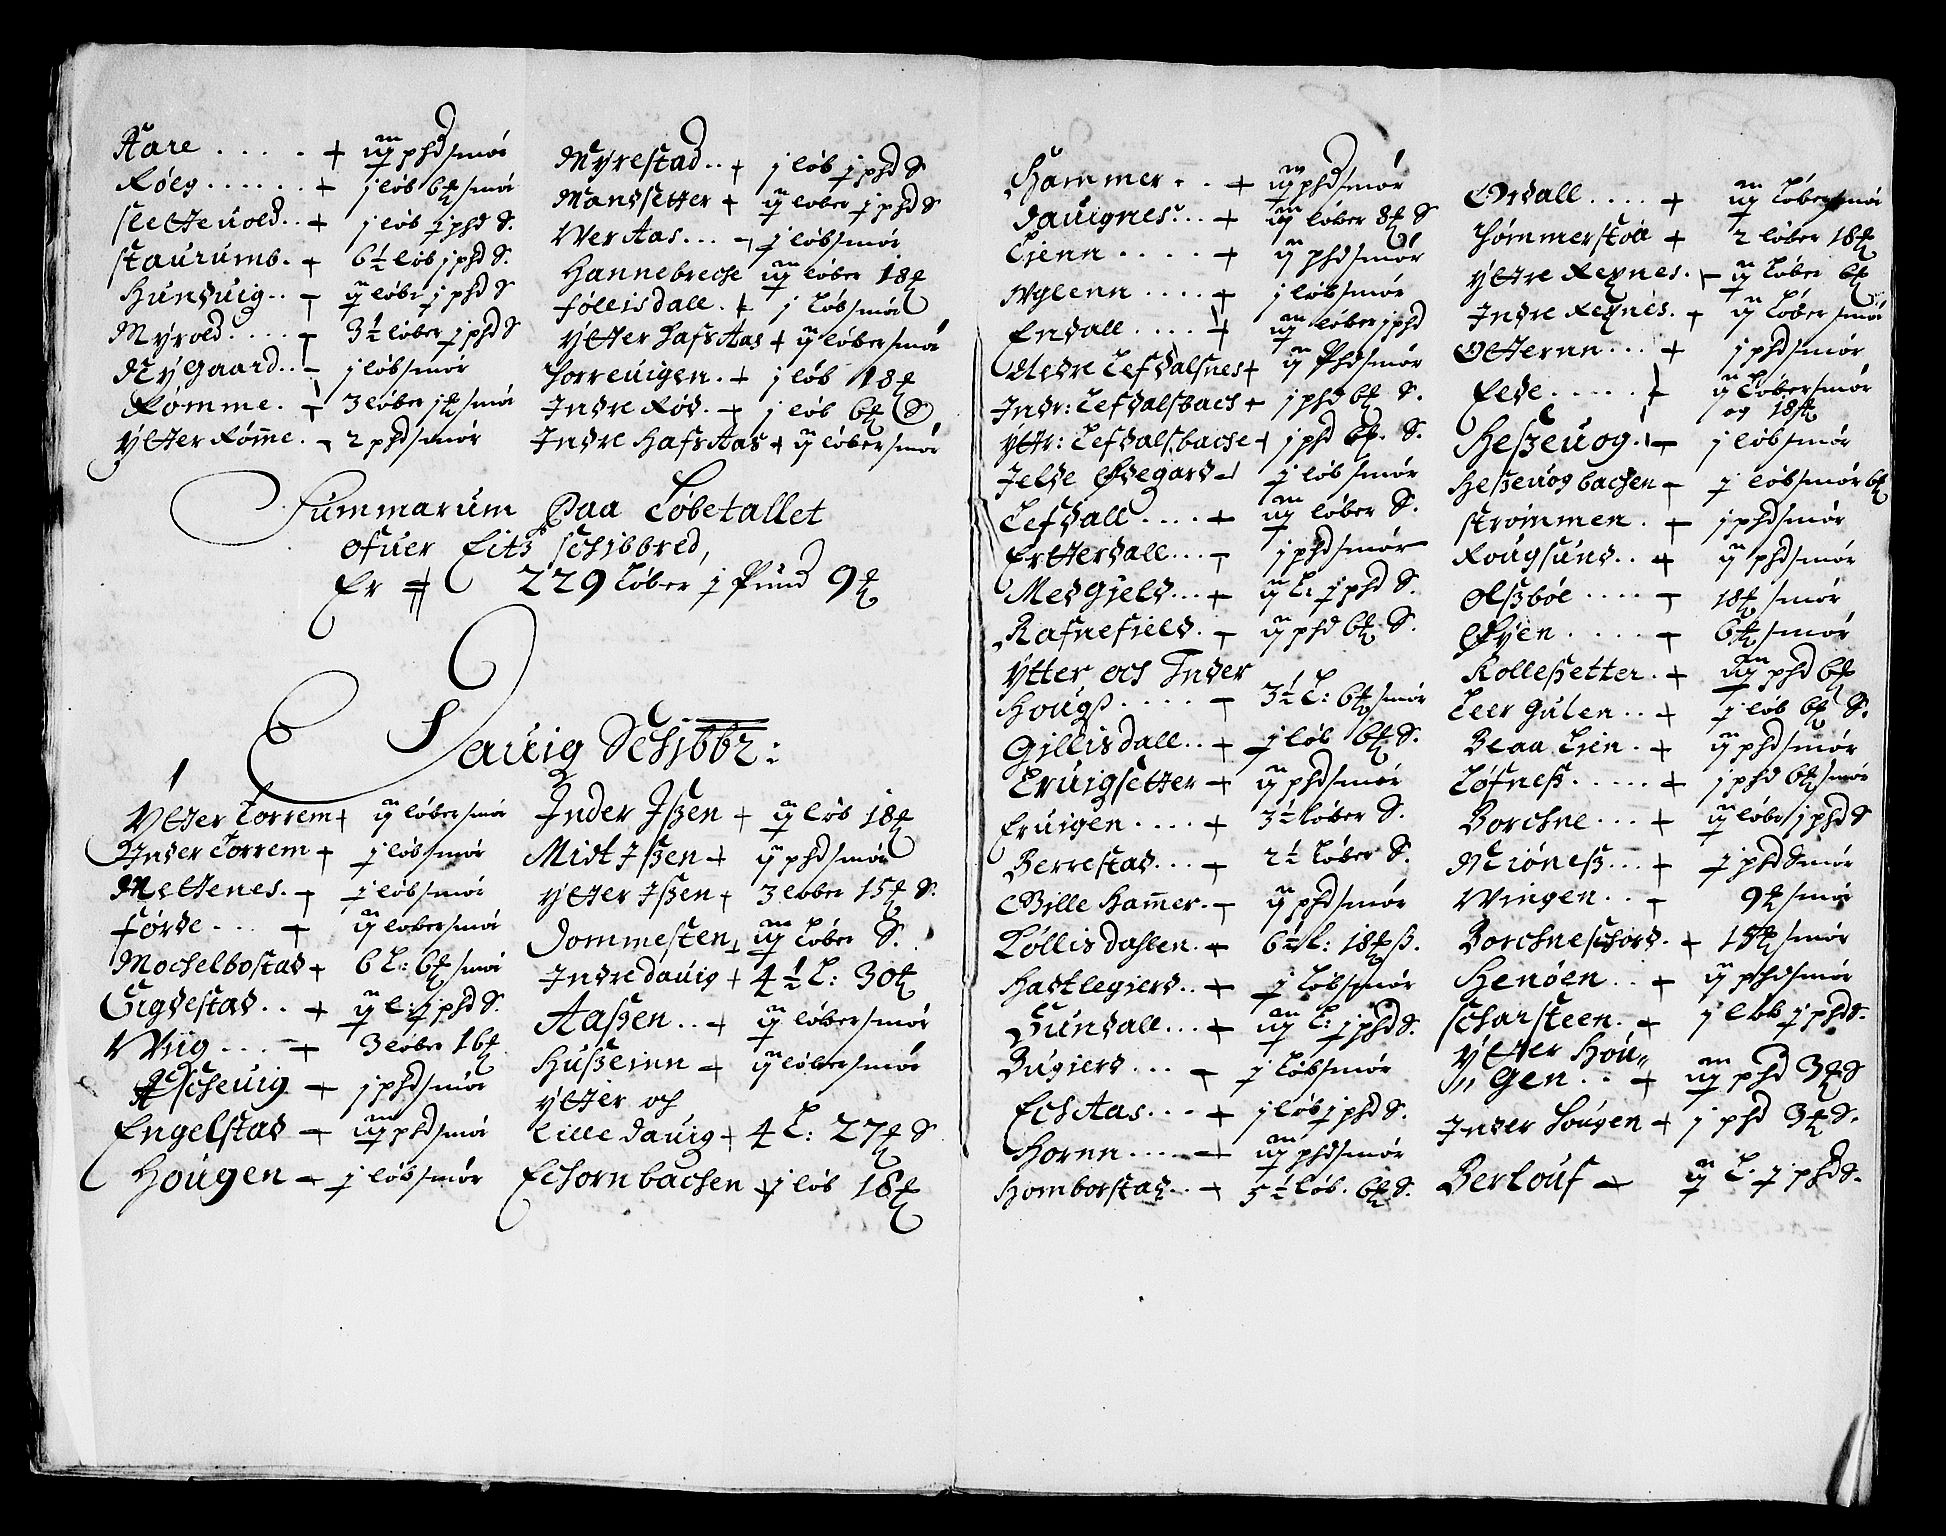 Aare . . . . . + iij phd smór
Róeg . . . . . . + j lób 6 smór
slettevold . . + j lób j phd S.
staurumb . + 6½ lób j phd S.
Hundvig . . + ij lóbr j phd S
Myrold . . . . + 3½ lóber j phd S
Nygaard . . + j lób smór
Rómme . + 3 lóber smór
Ytter Rómme . + 2 phd smór
Myrestad . . + j lób j phd S
Mandsetter + ij lober j phd S
Ver Aas . . . + j lób smór
Hannebreche iij lóber 18
Follisdall . + j lób smór
Ytter Hafs Aas + ij lóber smór
Torrevigen . + j lób 18
Indre Ród . + j lób 6 S
Indre Hafs Aas + ij lóber smór
Summarum Paa Lóbetallet
ofuer Eitz schibbred,
Er 229 Lóber j Pund 9
Dauig Schibbr:
Ytter Torrem + ij lóber smór
Inder Torrem + j lób smór
Mettenes . + j lób smór
fórde . . . + ij lober smór
Mochelbostad + 6 L: 6 smór
Sigdestad . . + ij L: j phd S.
Wiig . . . + 3 lóber 16
Ascheuig + j phd smór
Engelstad + iij phd smór
Hougen + j lób smór
Inder Ißen + ij lób 18
Midt Ißen + ij phd smór
Ytter Ißen + 3 lober 15 S.
Dommesten + iij Lóber S.
Indre dauig + 4½ L: 30
Aaßen . . + ij lóber smór
Hußeinn + ij lóber smór
Ytter och
Lille dauig + 4 L: 27 S
Echornbachen + j lób 18
Hammer . . + iij phd smór
Dauignes . . + iij lóber 8 S
Lienn . . . . + ij phd smór
Nyleenn . . . . + j lób smór
Endall . . . . + iij lóber j phd
Nedre Lefdalsnes + ij Phd smór
Indr: Lefdalsbach + j phd 6 S.
Yttr: Lefdalsbache + j phd 6 S.
Jelde Ødegard + j lób smór
Lefdall . . . . + iij lóber S.
Ertterdall . . . + j phd smór
Medgield . . . + ij L: j phd S.
Rafnefield . + ij phd 6 S.
Ytter och Inder
Hougß . . . . + 3½ L: 6 smór
Gillisdall . . + j lób 6 S.
Eruigsetter + ij phd smór
Eruigen . . . . + 3½ lóber S.
Berrestad . . . + 2½ Lóber S.
Bille Hammer . + ij phd smór
Lóllisdahlen . + 6½ L: 18 ß.
Hastlegierd . . + j Lób smór
Sundall . . . + iij L: j phd S.
Bugierd . . . + j Lób smór
Ech Aas . . . + j lób j phd S.
Hornn . . . . + iij phd smór
Homborstad . . + 5½ lób. 6 S.
Ørdall . . . . + iij Lóber smór
Hómmerstou + 2 lóber 18
Yttre Rexnes . + ij Lóber 6
Indre Rexnes . + ij Lóber smór
Otternn . . . + j phd smór
Eede . . . . . + ij Lóber smór
og 18
Heßeuog . + j lób smór
Heßeuogbachen + j lób smór 6
strómmen . + j phd smór
Rougsund . . + ij phd smór
Olßbóe . . . . + 18 smór
Øyen . . . . + 6 smór
Kolleßetter . + iij phd 6
Leer Gulen . . + j lób 6 S.
Beaa Lien . + ij phd smór
Lófneß . . . . . + j phd 6 smór
Borchne . . . + ij lóbr j phd S
Mióneß . . . + j phd smór
Wingen . . + 9 smór
Borchneschord . + 15 smór
Henóen . . + ij phd smór
scharsteen . + j lób j phd S.
Ytter Hou„
„gen . . + iij phd 3 S
Inder Hougen + j phd 3 S.
Berlouf + ij L. j phd S.